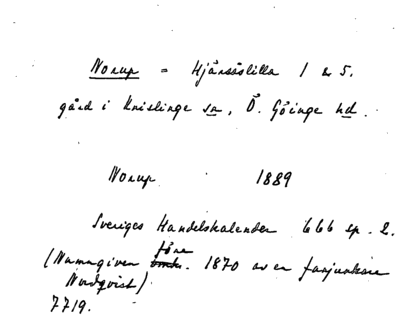 Norup = Hjärsåslilla 1 & 5.
gård i Knislinge sn, Ö. Göinge hd.
Norup 1889
Sveriges Handelskalender 666 sp. 2.
(Namngiven före omkr. 1870 av en fanjunkare
Nordqvist)
7719.